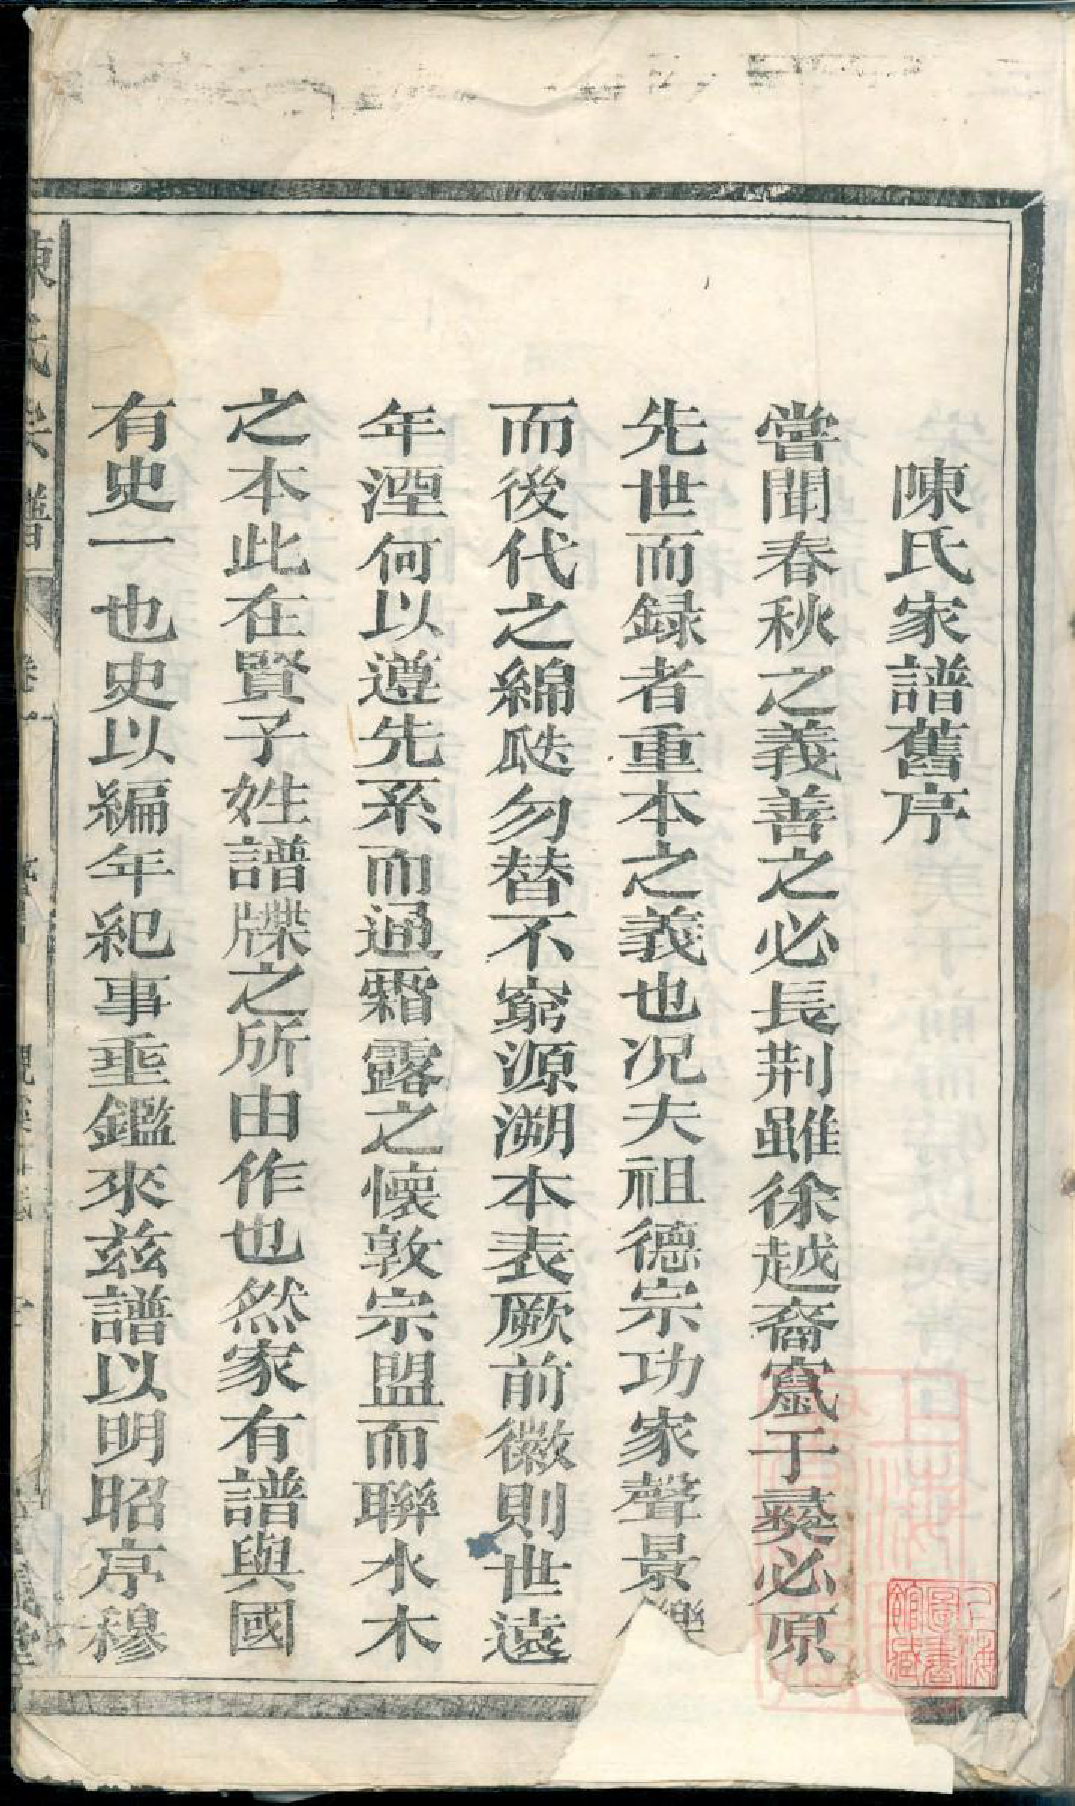 陳氏家譜舊序
嘗聞春秋之義善之必長荆雖徐越裔竄于蕟必原
先世而録者重本之義也况夫祖德宗功家聲景鑠
而後代之綿瓞勿替不窮源溯本表厥前徽則世遠
年湮何以遵先系而通霜露之懷敦宗盟而聯水木
之本此在賢子姓譜牒之所由作也然家有譜與國
有史一也史以編年紀事垂鑑來茲譜以明昭序穆
陳氏宗譜
卷一
上海圖書館藏